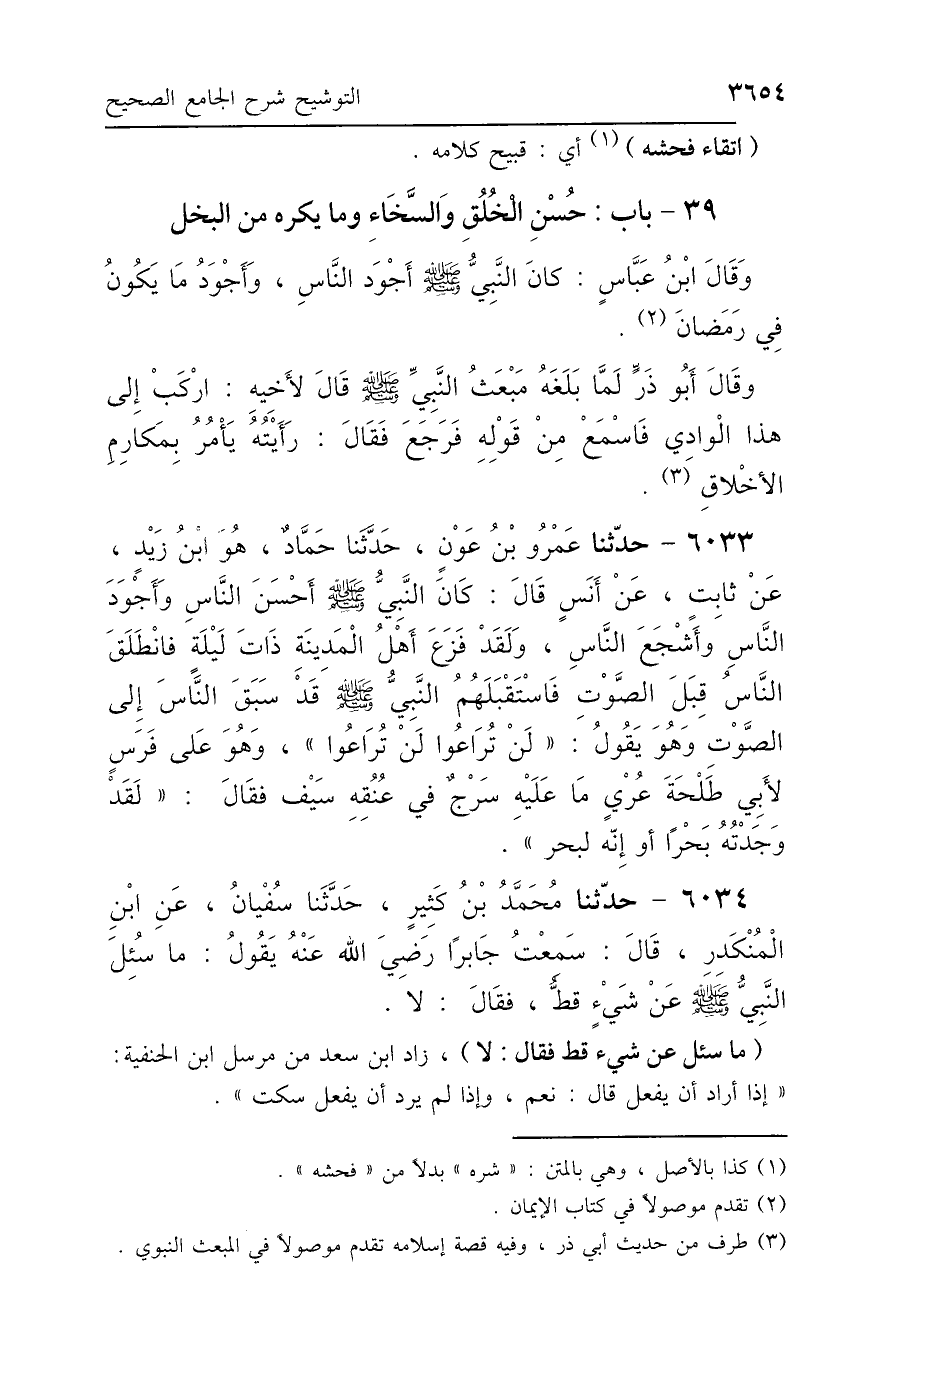 ٣٦٥٤ التوشيح شرح الجامع الصحيح
( اتقاء فحشه ) (١) أي : قبيح كلامه .
٣٩ - باب : حُسْنِ الْخُلُقِ وَالسَّخَاءِ وما يكره من البخل
وَقَالَ ابْنُ عَبَّاسٍ : كانَ النَّبِيُّ ﷺ أجْوَد النَّاسِ ، وَأَجْوَدُ مَا يَكُونُ
فِي رَمَضانَ (٢) .
وقَالَ أَبُو ذَرٍّ لَمَّا بَلَغَهُ مَبْعَثُ النَّبِيِّ ﷺ قَالَ لأخيهِ : ارْكَبْ إلى
هذا الْوادِي فَاسْمَعْ مِنْ قَوْلِهِ فَرَجَعَ فَقَالَ : رَأَيْتُهُ يَأْمُرُ بِمَكارِمِ
الأخْلاقِ (٣) .
٦٠٣٣ - حدّثنا عَمْرُو بْنُ عَوْنٍ ، حَدَّثَنا حَمَّادٌ ، هُوَ ابْنُ زَيْدٍ ،
عَنْ ثابِتٍ ، عَنْ أَنَسٍ قَالَ : كَانَ النَّبِيُّ ﷺ أَحْسَنَ النَّاسِ وأَجْوَدَ
النَّاسِ وأَشْجَعَ النَّاسِ ، وَلَقَدْ فَزَعَ أَهْلُ الْمَدِينَةِ ذَاتَ لَيْلَةٍ فانْطَلَقَ
النَّاسُ قِبَلَ الصَّوْتِ فَاسْتَقْبَلَهُمُ النَّبِيُّ ﷺ قَدْ سَبَقَ النَّاسَ إلى
الصَّوْتِ وَهُوَ يَقُولُ : « لَنْ تُرَاعُوا لَنْ تُرَاعُوا » ، وَهُوَ عَلى فَرَسٍ
لأَبِي طَلْحَةَ عُرْيٍ مَا عَلَيْهِ سَرْجٌ في عُنُقِهِ سَيْف فقَالَ : « لَقَدْ
وَجَدْتُهُ بَحْرًا أو إنّه لبحر » .
٦٠٣٤ - حدّثنا مُحَمَّدُ بْنُ كَثِيرٍ ، حَدَّثَنا سُفْيانُ ، عَنِ ابْنِ
الْمُنْكَدِرِ ، قَالَ : سَمِعْتُ جَابِرًا رَضِيَ الله عَنْهُ يَقُولُ : ما سئُلَ
النَّبِيُّ ﷺ عَنْ شَيْءٍ قطُّ ، فقَالَ : لا .
( ما سئل عن شيء قط فقال : لا ) ، زاد ابن سعد من مرسل ابن الحنفية :
« إذا أراد أن يفعل قال : نعم ، وإذا لم يرد أن يفعل سكت » .
(١) كذا بالأصل ، وهي بالمتن : « شره » بدلاً من « فحشه » .
(٢) تقدم موصولاً في كتاب الإيمان .
(٣) طرف من حديث أبي ذر ، وفيه قصة إسلامه تقدم موصولاً في المبعث النبوي .